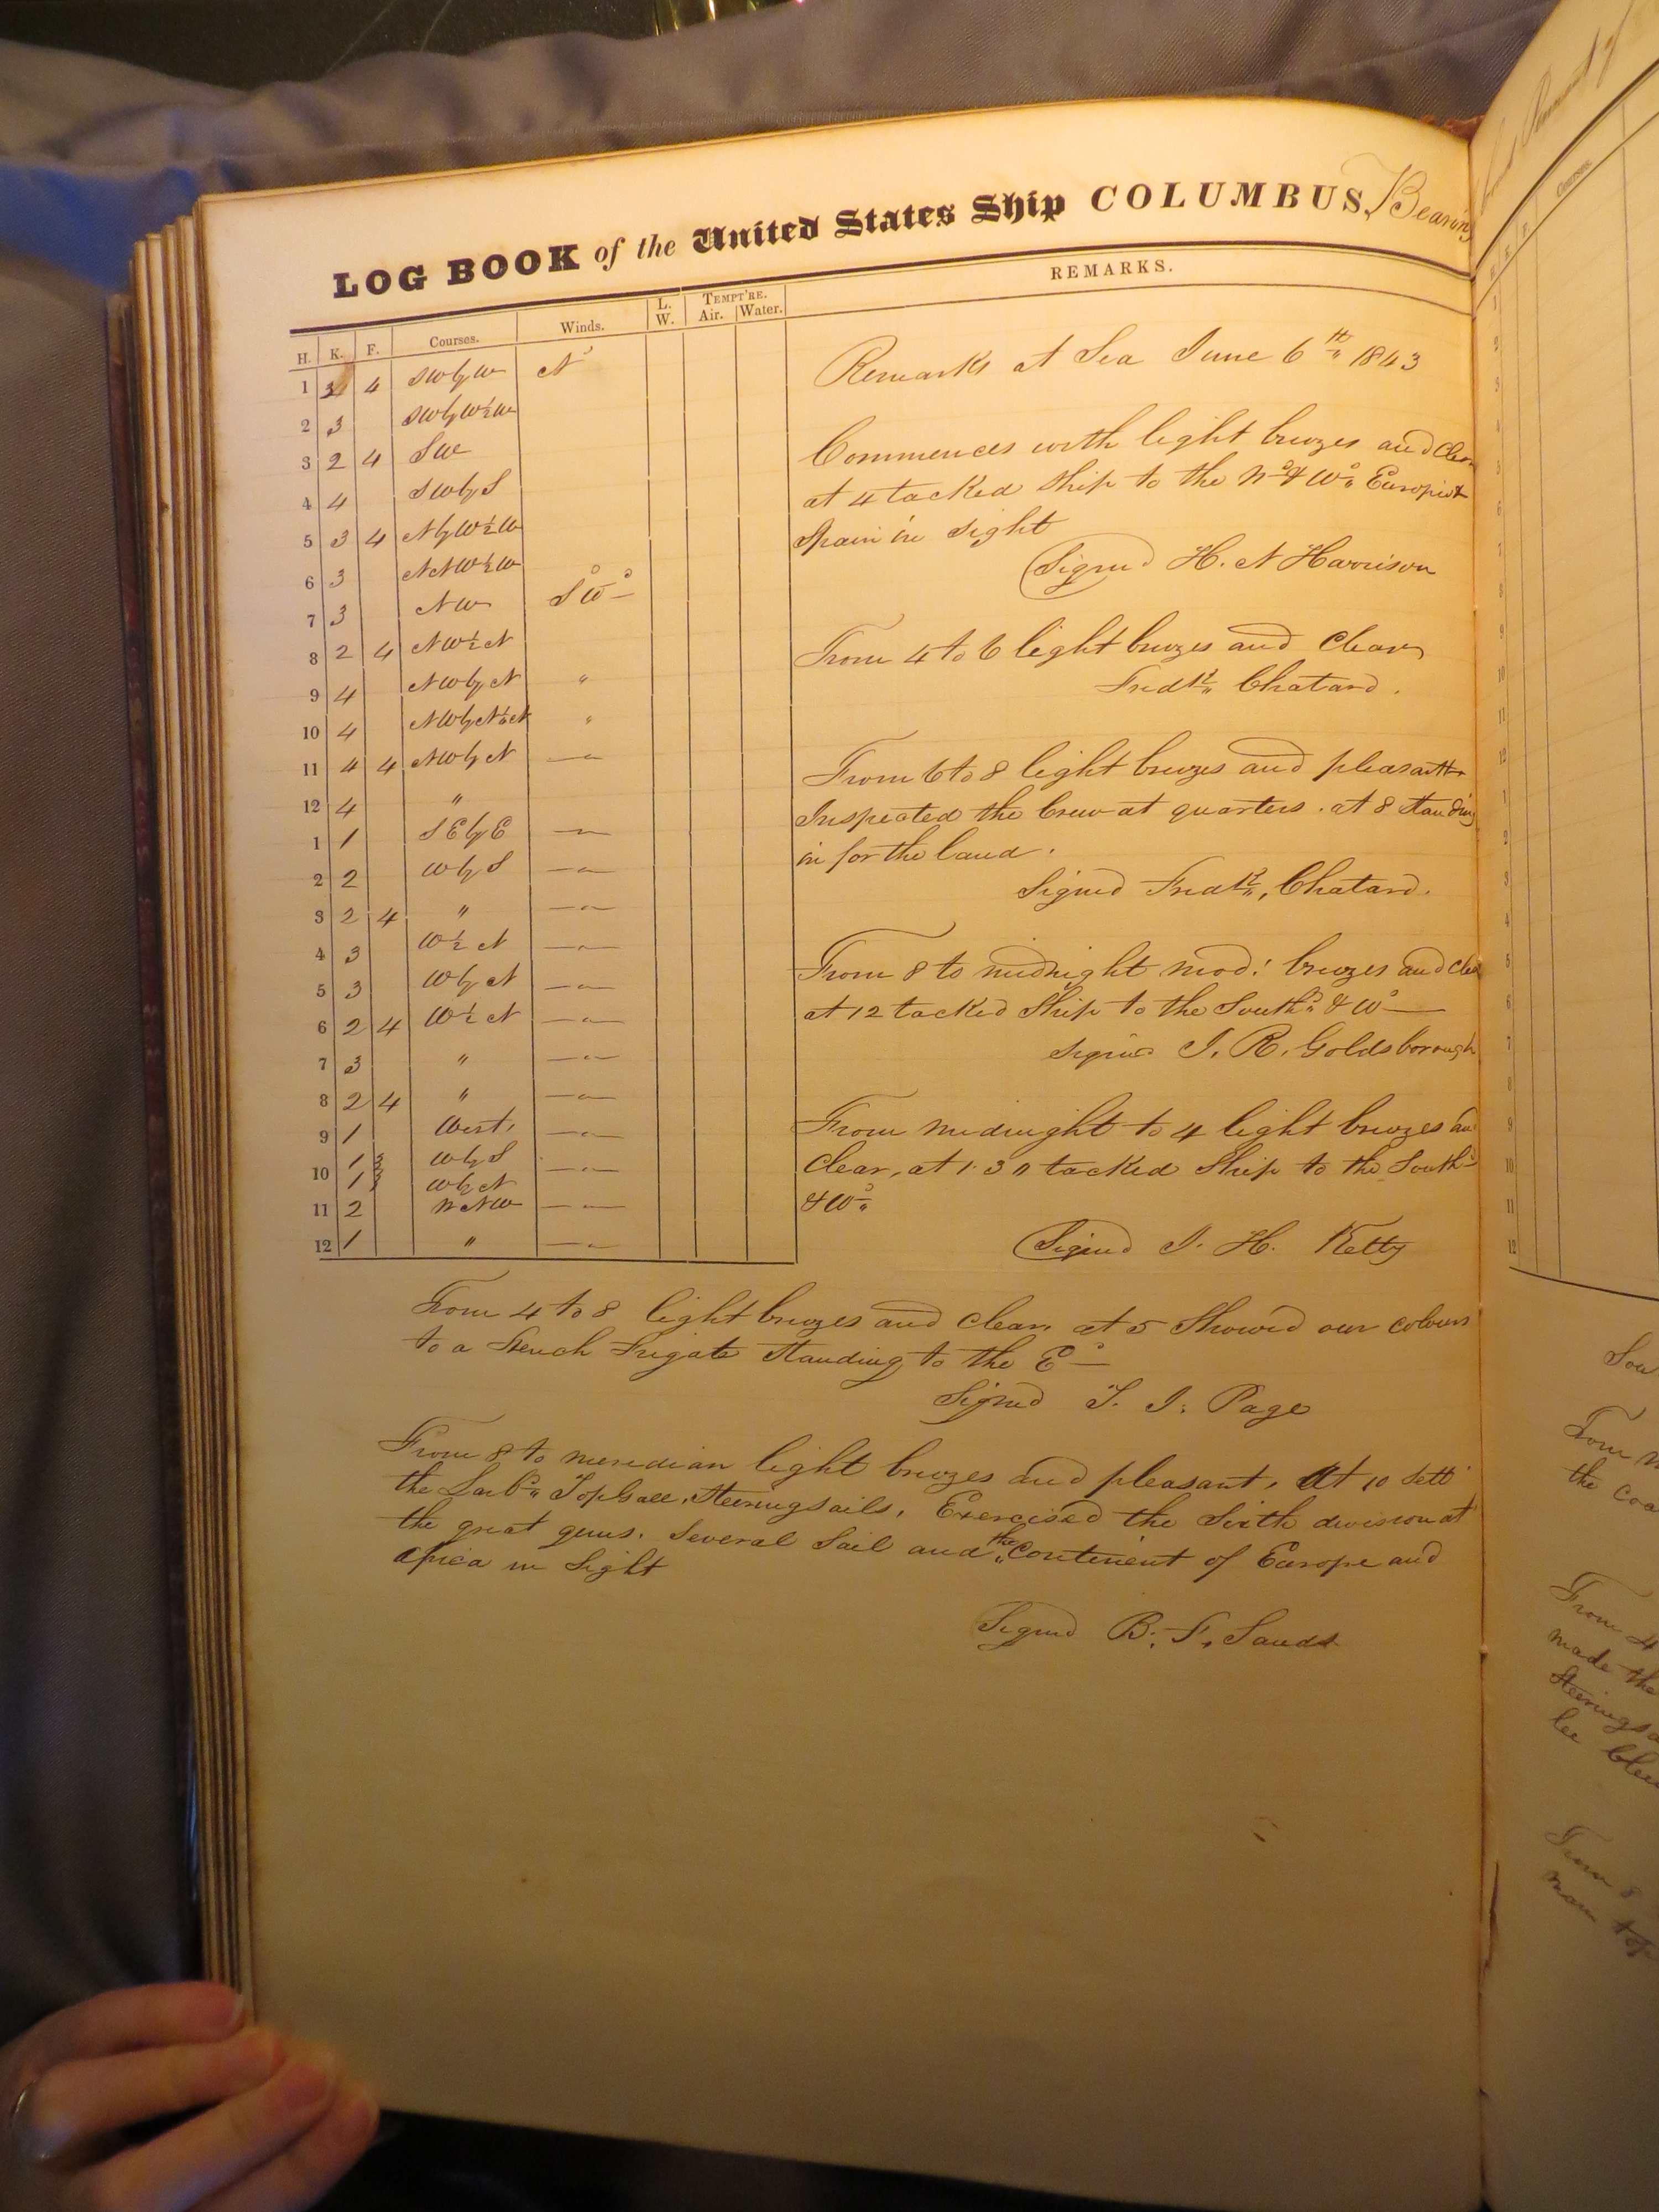 LOG BOOK of the United States Ship COLUMBUS, Bearing
H. K. F. Courses. Winds. L. W. TEMPT'RE. Air. Water. REMARKS.
1 3 4 SWbyW N°
2 3 SWbyW½W
3 2 4 SW
4 4 SWbyS
5 3 4 NbyW½W
6 3 NNW½W
7 3 NW S°W°
8 2 4 NW½N
9 4 NWbyN "
10 4 NWbyN½N "
11 4 4 NWbyN —"—
12 4 "
1 1 SEbyE —"—
2 2 WbyS —"—
3 2 4 " —"—
4 3 W½N —"—
5 3 WbyN —"—
6 2 4 W½N —"—
7 3 " —"—
8 2 4 " —"—
9 1 West, —"—
10 1 WbyS —"—
1 WbyN
11 2 NNW —"—
12 1 " —"—
Remarks at Sea June 6th 1843
Commences with light breezes and clear
at 4 tacked ship to the N° & W°
Spain in sight
Signed H. N Harrison
From 4 to 6 light breezes and Clear
Fredk Chatard.
From 6 to 8 light breezes and pleasant
Inspected the Crew at quarters. at 8 standing
in for the land.
Signed Fredk, Chatard.
From 8 to midnight mod: breezes and clea
at 12 tacked Ship to the South° & W°—
Signed J. R. Goldsborough
From Midnight to 4 light breezes an
Clear, at 1.30 tacked Ship to the South°
& W°
Signed J. H. Kelty
From 4 to 8 light breezes and Clear. at 5 Showed our colours
to a French Frigate Standing to the E°—
Signed T. J. Page
From 8 to meridian light breezes and pleasant, At 10 Sett
the Larb° TopGall, Steeringsails, Exercised the Sixth division at
the great guns. Several Sail and the Continent of Europe and
Africa in Sight
Signed B. F. Sands
Courses.
From 4
made the
From 8